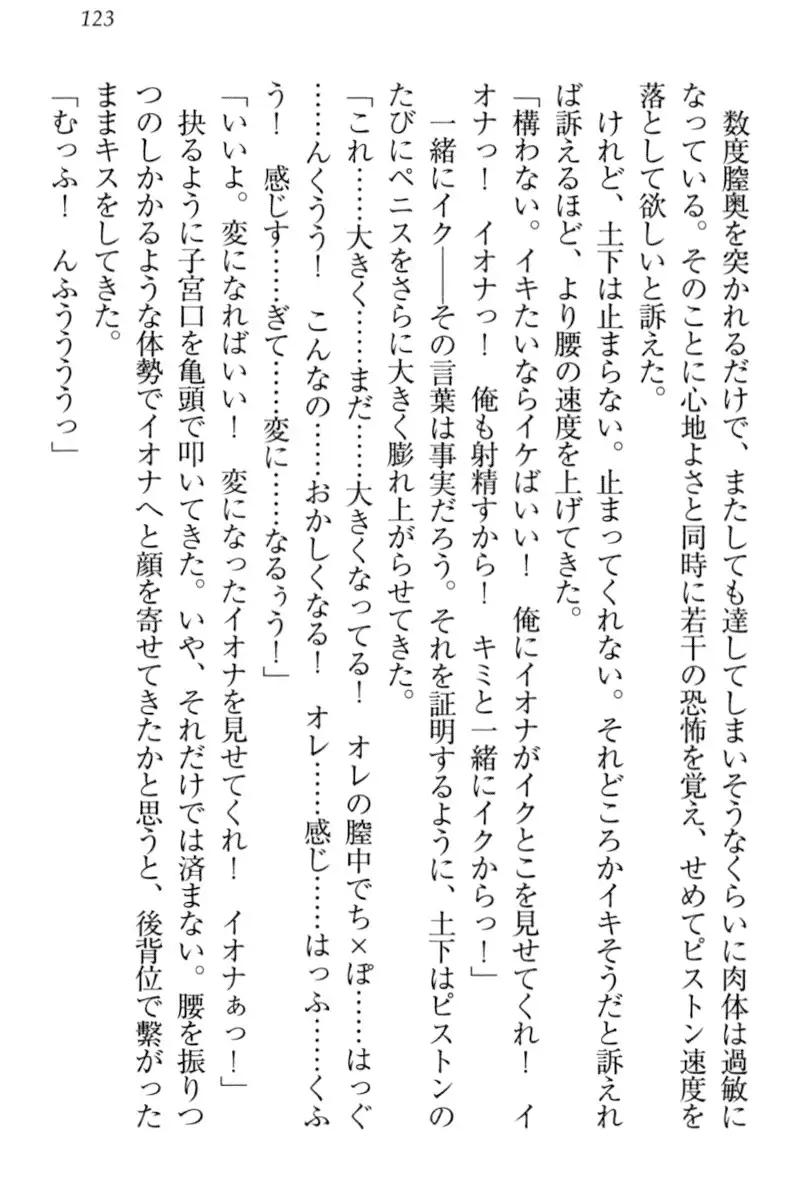 123
数度膣奥を突かれるだけで、またしても達してしまいそうなくらいに肉体は過敏に
なっている。そのことに心地よさと同時に若干の恐怖を覚え、せめてピストン速度を
落として欲しいと訴えた。
けれど、土下は止まらない。止まってくれない。それどころかイキそうだと訴えれ
ば訴えるほど、より腰の速度を上げてきた。
「構わない。イキたいならイケばいい！　俺にイオナがイクとこを見せてくれ！　イ
オナっ！　イオナっ！　俺も射精すから！　キミと一緒にイクからっ！」
一緒にイク――その言葉は事実だろう。それを証明するように、土下はピストンの
たびにペニスをさらに大きく膨れ上がらせてきた。
「これ……大きく……まだ……大きくなってる！　オレの膣中でち×ぽ……はっぐ
……んくうう！　こんなの……おかしくなる！　オレ……感じ……はっふ……くふ
う！　感じす……ぎて……変に……なるぅう！」
「いいよ。変になればいい！　変になったイオナを見せてくれ！　イオナぁっ！」
抉るように子宮口を亀頭で叩いてきた。いや、それだけでは済まない。腰を振りつ
つのしかかるような体勢でイオナへと顔を寄せてきたかと思うと、後背位で繋がった
ままキスをしてきた。
「むっふ！　んふぅうううっ」